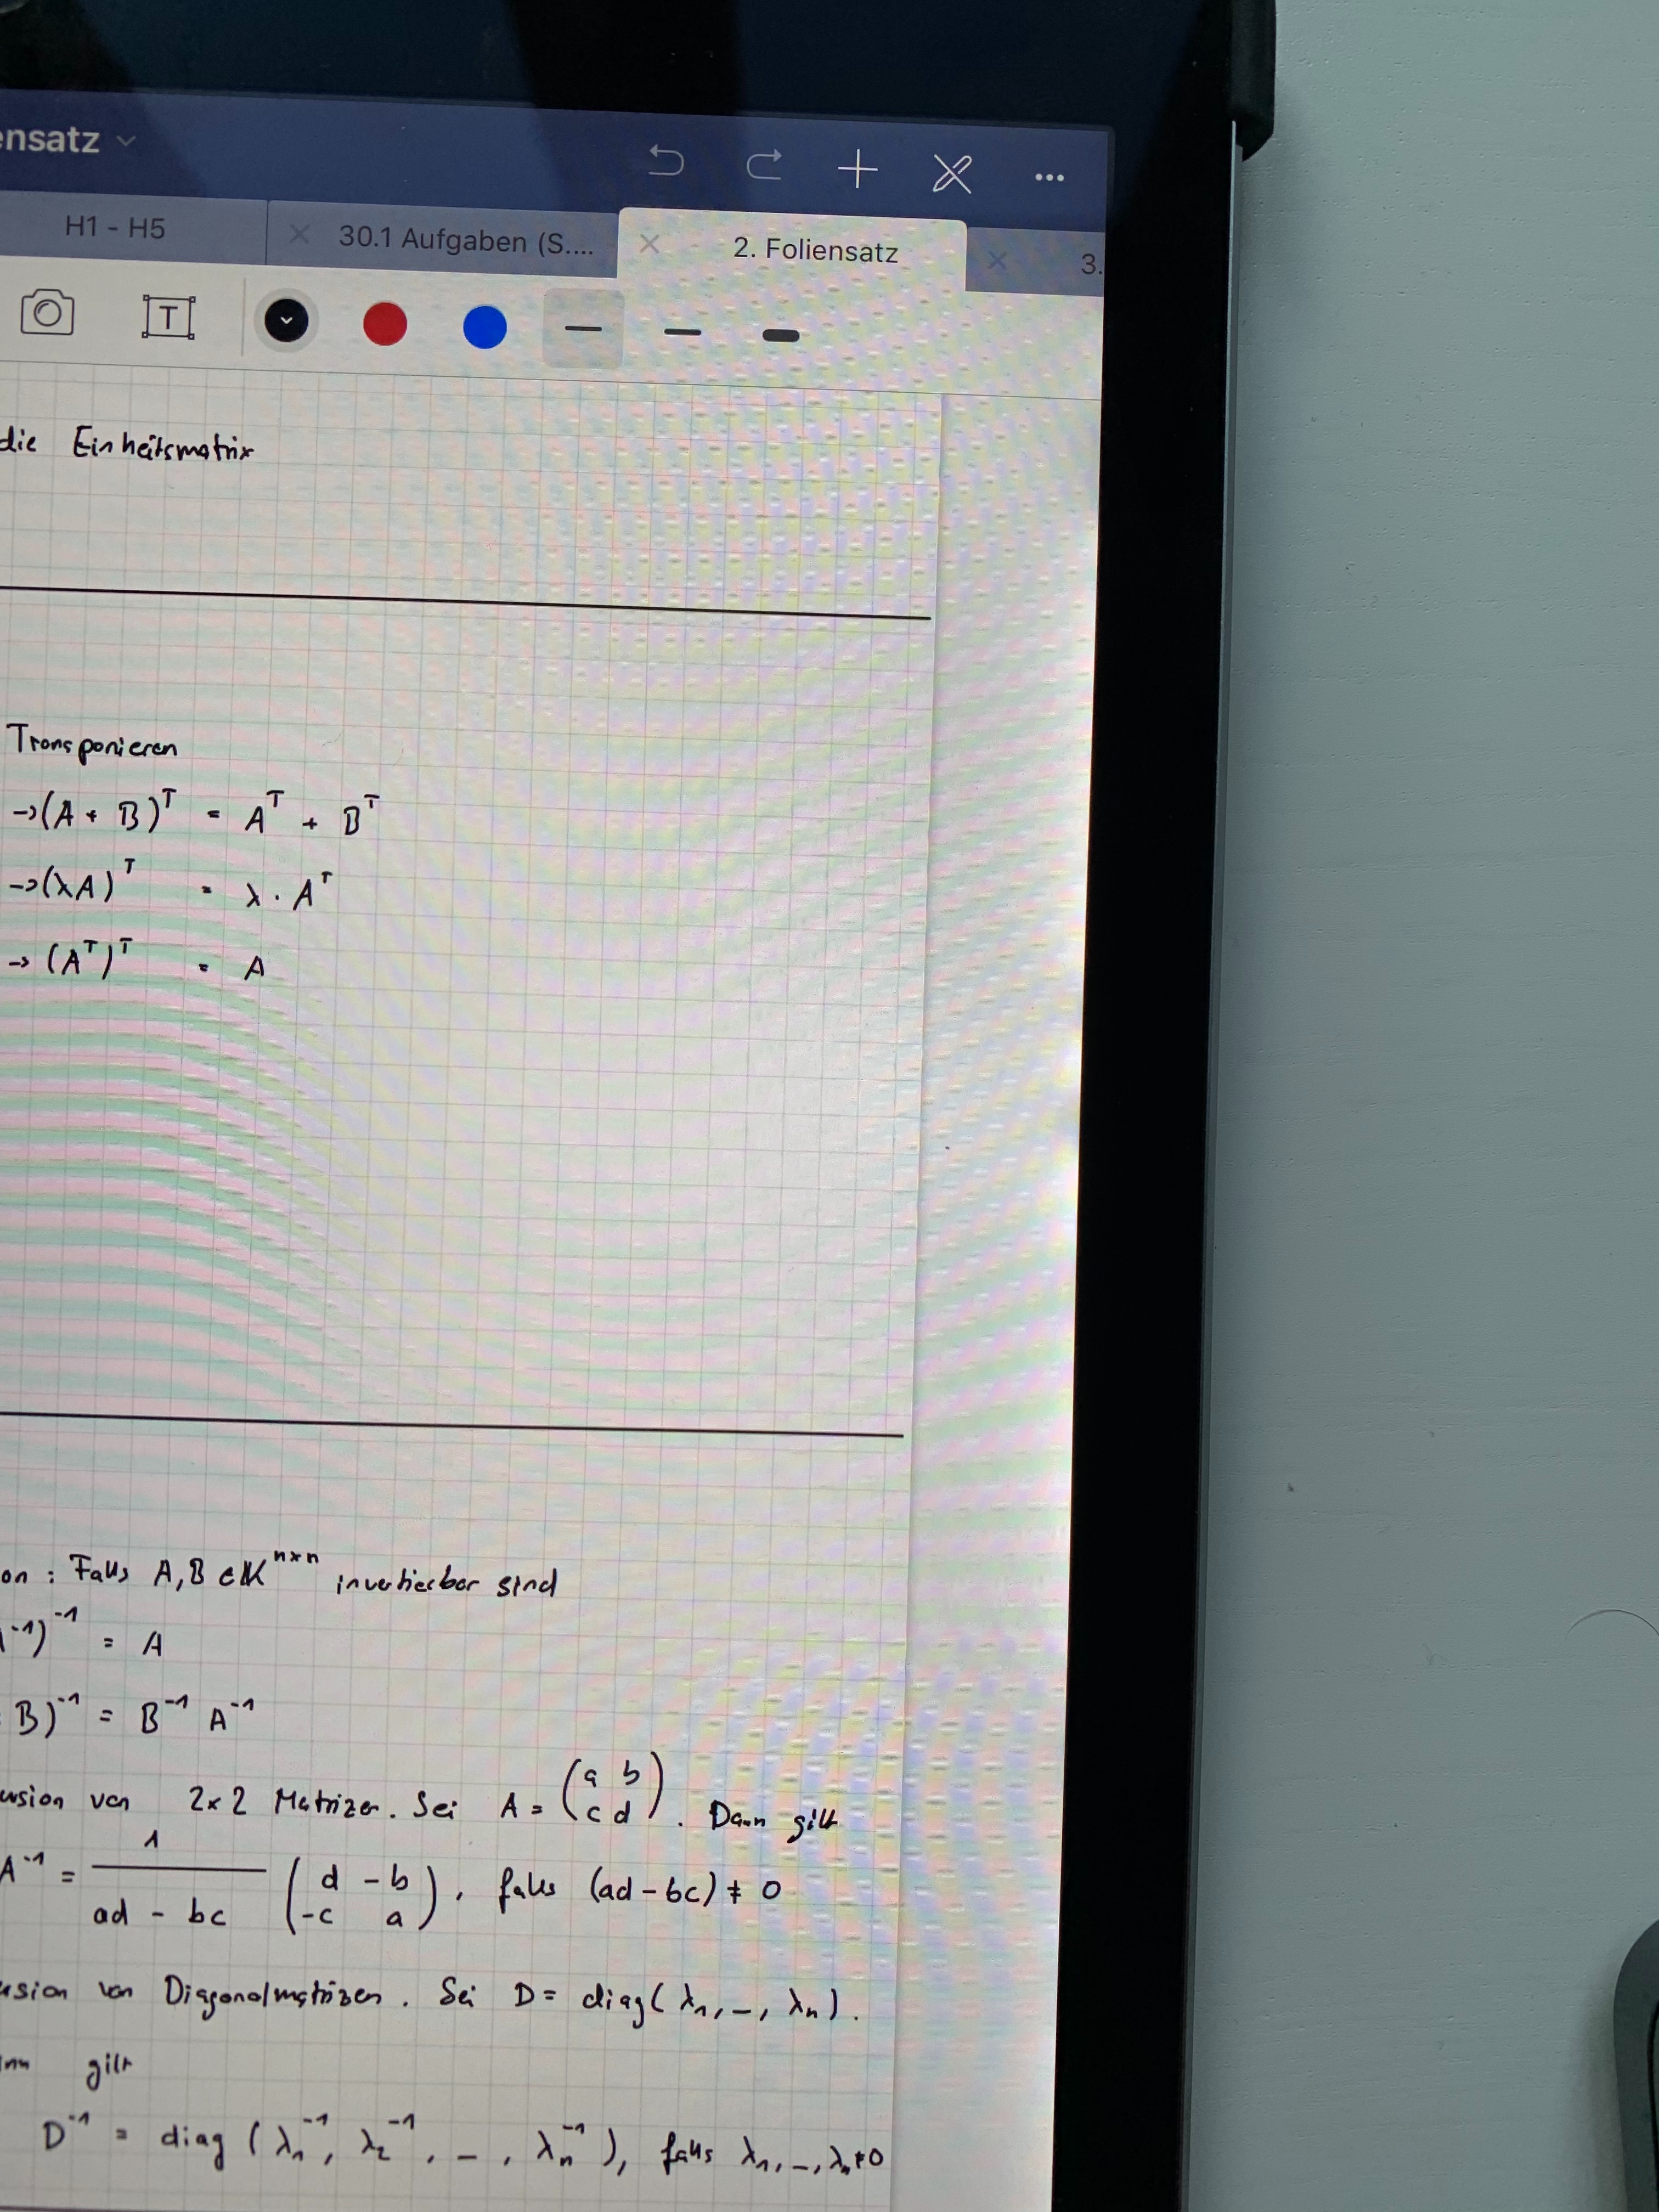 ensatz
H1 - H5
30.1 Aufgaben (S....
2. Foliensatz
3.
T
die Einheitsmatrix
Transponieren
→(A + B)ᵀ = Aᵀ + Bᵀ
→(λA)ᵀ = λ · Aᵀ
→ (Aᵀ)ᵀ = A
on : Falls A, B ∈ 𝕂ⁿˣⁿ invertierbar sind
⁻¹)⁻¹ = A
B)⁻¹ = B⁻¹ A⁻¹
ersion von 2x2 Matrizen. Sei A = (a b
c d). Dann gilt
A⁻¹ = 1
ad - bc
(d -b
-c a), falls (ad - bc) ≠ 0
ersion von Diagonalmatrizen. Sei D = diag(λ₁, –, λₙ).
ann gilt
D⁻¹ = diag (λ₁⁻¹, λ₂⁻¹, –, λₙ⁻¹), falls λ₁, –, λₙ ≠ 0